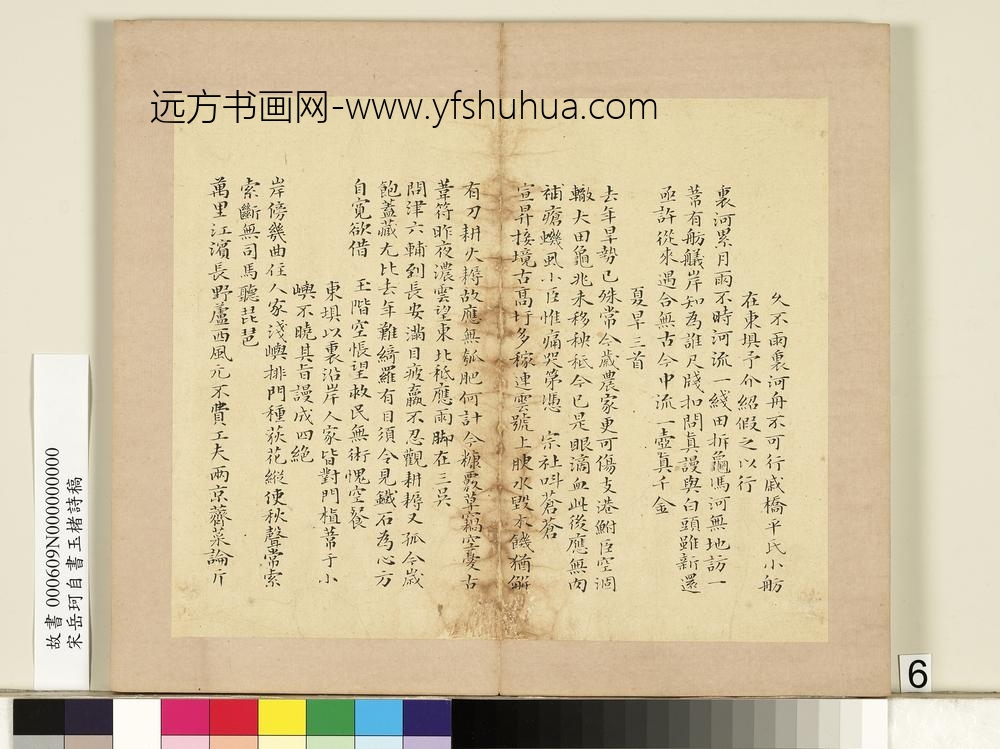 远方书画网-www.yfshuhua.com
久不雨裏河舟不可行戚橋平氏小舫
在東埧予介紹假之以行
裏河累月雨不時河流一綫田拆龜馮河無地訪一
葦有舫艤岸知為誰尺牋扣問真謾與白頭雖新還
亟許從來遇合無古今中流一壺真千金
夏旱三首
去年旱勢已殊常今歲農家更可傷支港鮒臣空涸
轍大田龜兆未移秧秪今已是眼滴血此後應無肉
補瘡蟣虱小臣惟痛哭第憑 宗社呌蒼蒼
宣昇接境古髙圩多稼連雲號上腴水毀木饑猶觧
有刀耕火耨故應無瓠肥何計今糠覈草竊空憂古
萑符昨夜濃雲望東北秪應雨脚在三吴
問津六輔到長安滿目疲羸不忍觀耕耨又孤今歲
飽蓋藏尤比去年難綺羅有日須令見鐵石為心方
自寛欲借 玉階空悵望救民無術愧空餐
東埧以裏沿岸人家皆對門植葦于小
嶼不曉其旨謾成四絶
岸傍幾曲住人家淺嶼排門種荻花縱使秋聲常索
索斷無司馬聽琵琶
萬里江濱長野蘆西風元不費工夫兩京薺菜論斤
故書 000609N000000000
宋岳珂自書玉楮詩稿
6